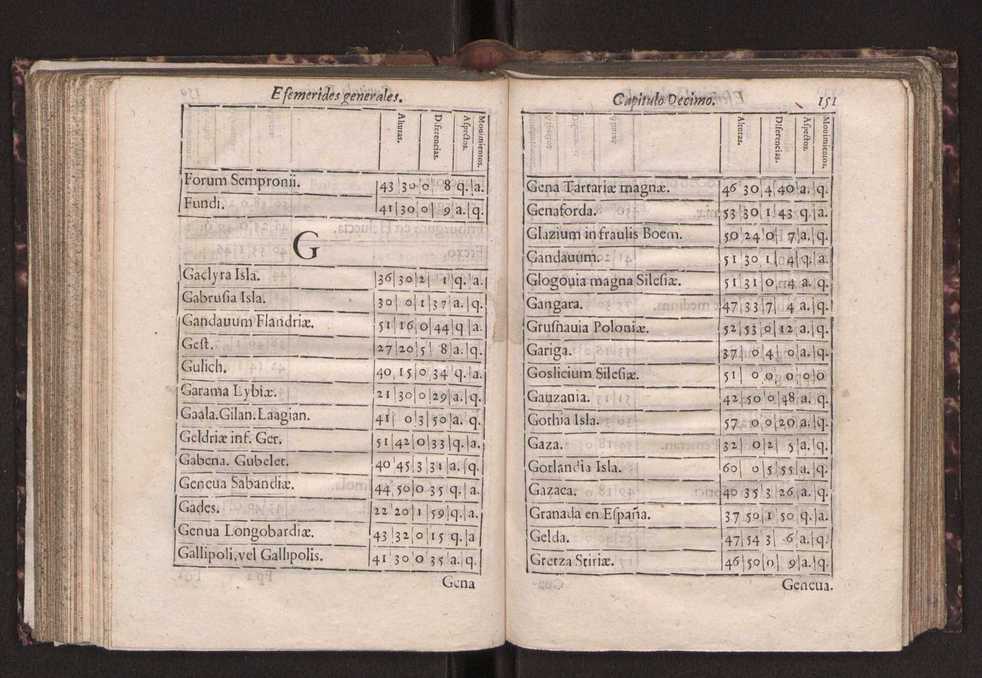 Eſemerides generales.
Alturas. Diferencias. Aſpectos. Mouimientos.
Forum Sempronii. 43 30 0 8 q. a.
Fundi. 41 30 0 9 a. q.
G
Gaclyra Isla. 36 30 2 1 q. a.
Gabruſia Isla. 30 0 1 37 a. q.
Gandauum Flandriæ. 51 16 0 44 q. a.
Geſt. 27 20 5 8 a. q.
Gulich. 40 15 0 34 q. a.
Garama Lybiæ. 21 30 0 29 a. q.
Gaala. Gilan. Laagian. 41 0 3 50 a. q.
Geldriæ inf. Ger. 51 42 0 33 q. a.
Gabena. Gubeler. 40 45 3 31 a. q.
Geneua Sabandiæ. 44 50 0 35 q. a.
Gades. 22 20 1 59 q. a.
Genua Longobardiæ. 43 32 0 15 q. a
Gallipoli, vel Gallipolis. 41 30 0 35 a. q.
Gena
Capitulo Decimo. 151
Alturas. Diferencias. Aſpectos. Mouimientos.
Gena Tartariæ magnæ. 46 30 4 40 a. q.
Genaforda. 53 30 1 43 q. a.
Glazium in fraulis Boem. 50 24 0 7 a. q.
Gandauum. 51 30 1 4 q. a.
Glogouia magna Sileſiæ. 51 31 0 4 a. q.
Gangara. 47 33 7 4 a. q.
Gruſnauia Poloniæ. 52 53 0 12 a. q.
Gariga. 37 0 4 0 a. q.
Goslicium Sileſiæ. 51 0 0 0 0 0
Gauzania. 42 50 0 48 a. q.
Gothia Isla. 57 0 0 20 a. q.
Gaza. 32 0 2 5 a. q.
Gotlandia Isla. 60 0 5 55 a. q.
Gazaca. 40 35 3 26 a. q.
Granada en Eſpaña. 37 50 1 50 q. a.
Gelda. 47 54 3 6 a. q.
Gretza Stiriæ. 46 50 0 9 a. q.
Geneua.